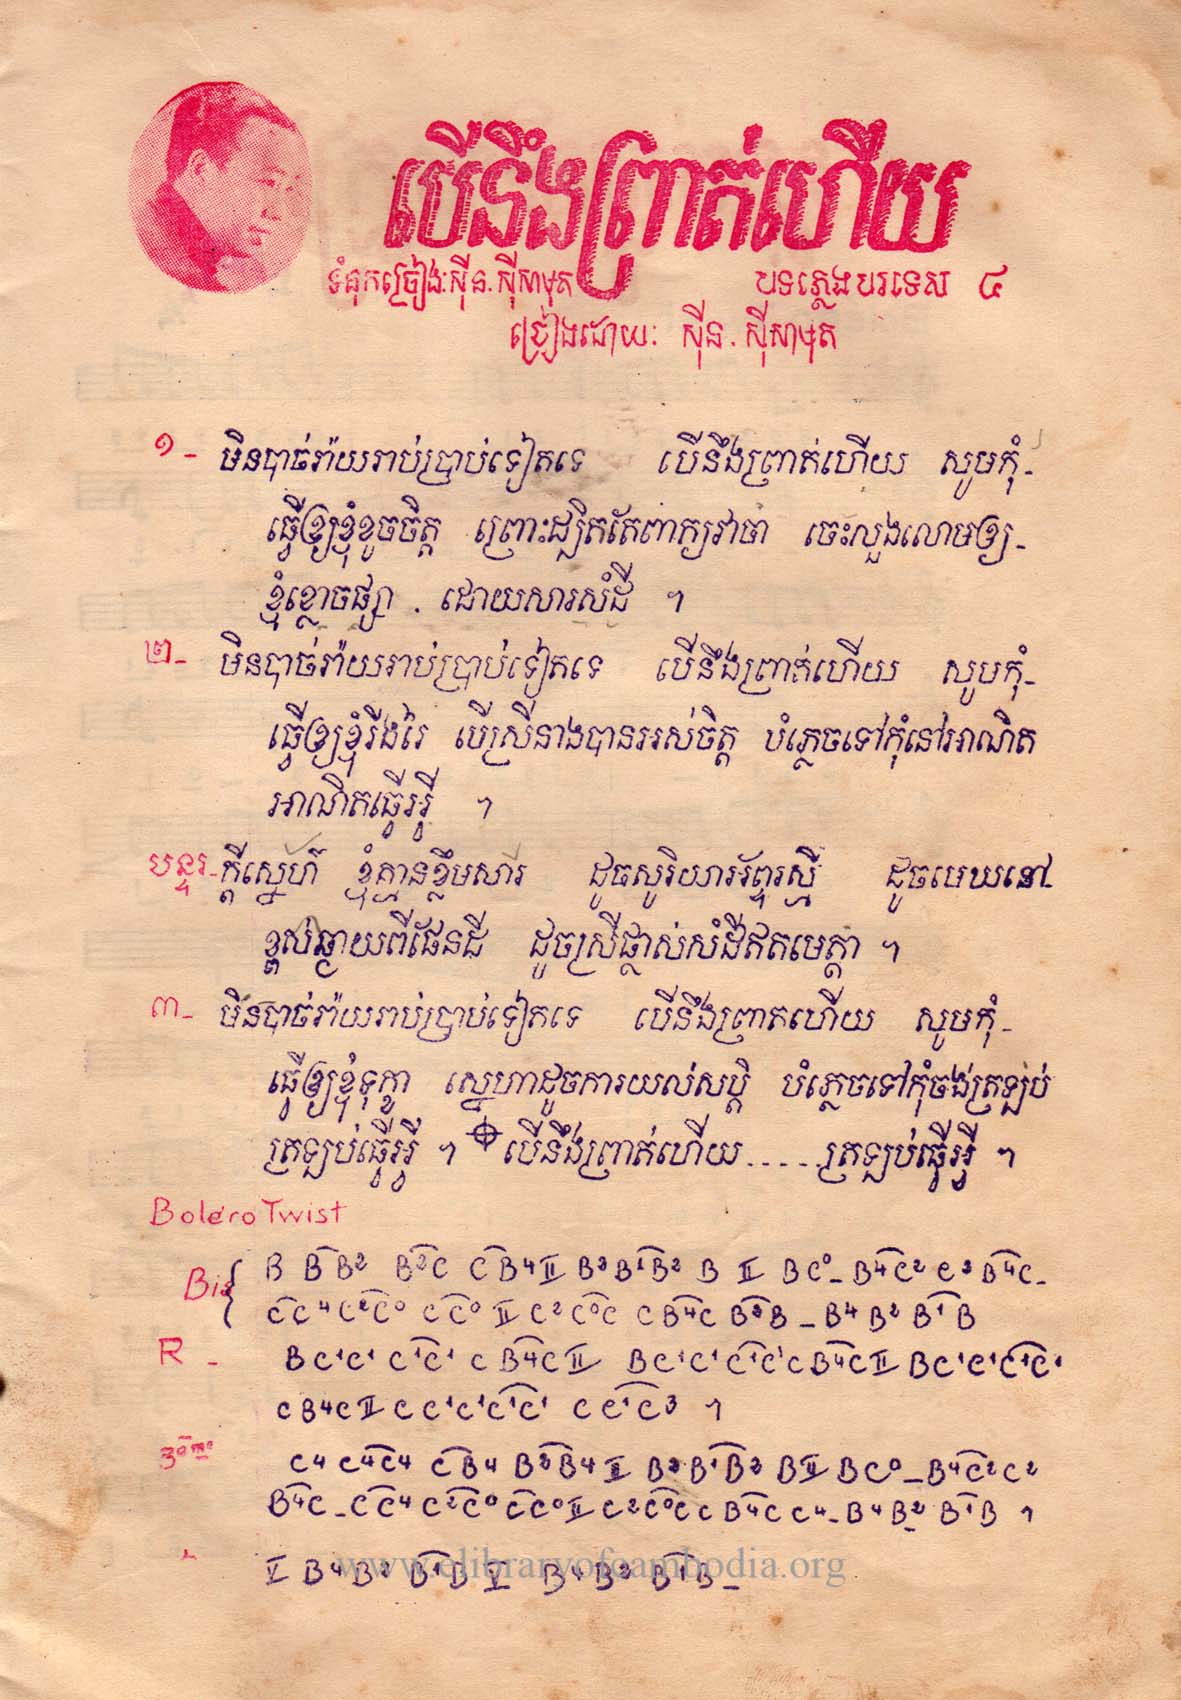 បើនឹងព្រាត់ហើយ
ទំនុកច្រៀង: ស៊ីន.ស៊ីសាមុត បទភ្លេងបរទេស ៤
ច្រៀងដោយ: ស៊ីន . ស៊ីសាមុត
១- មិនបាច់រ៉ាយរាប់ប្រាប់ទៀតទេ បើនឹងព្រាត់ហើយ សូមកុំ-
ធ្វើឲ្យខ្ញុំខូចចិត្ត ព្រោះដ្បិតតែពាក្យវាចា ចេះលួងលោមឲ្យ-
ខ្ញុំខ្លោចផ្សា . ដោយសារសំដី ។
២- មិនបាច់រ៉ាយរាប់ប្រាប់ទៀតទេ បើនឹងព្រាត់ហើយ សូមកុំ-
ធ្វើឲ្យខ្ញុំរីងរៃ បើស្រីនាងបានអស់ចិត្ត បំភ្លេចទៅកុំនៅអាណិត
អាណិតធ្វើអ្វី ។
បន្ទរ-ក្តីស្នេហ៍ ខ្ញុំគ្មានខ្លឹមសារ ដូចសូរិយាអ័ព្ទរស្មី ដូចមេឃនៅ-
ខ្ពស់ឆ្ងាយពីផែនដី ដូចស្រីផ្លាស់សំដីឥតមេត្តា ។
៣- មិនបាច់រ៉ាយរាប់ប្រាប់ទៀតទេ បើនឹងព្រាតហើយ សូមកុំ-
ធ្វើឲ្យខ្ញុំទុក្ខា ស្នេហាដូចការយល់សប្តិ បំភ្លេចទៅកុំចង់ត្រឡប់
ត្រឡប់ធ្វើអ្វី ។ បើនឹងព្រាត់ហើយ....ត្រឡប់ធ្វើអ្វី ។
Boléro Twist
Bis{ B BB² B²C CB4II B³B¹B² B II BC⁰-B4C²C³B4C-
CC4C²C⁰ CC⁰II C²C⁰C CB4C B³B-B4 B² B¹B
R - BC¹C¹ C¹C¹ C B4CII BC¹C¹C¹C¹CB4CII BC¹C¹C¹C¹
CB4CII CC¹C¹C¹C¹ CC¹C³ ។
3ème C4 C4C4 CB4 B³B4II B³B¹B³ BII BC⁰-B4C²C²
B4C-CC4C²C⁰CC⁰II C²C⁰CCB4CC4-B4B² B¹B ។
V B4B² B¹B V B4B² B¹B-
www.elibraryofcambodia.org